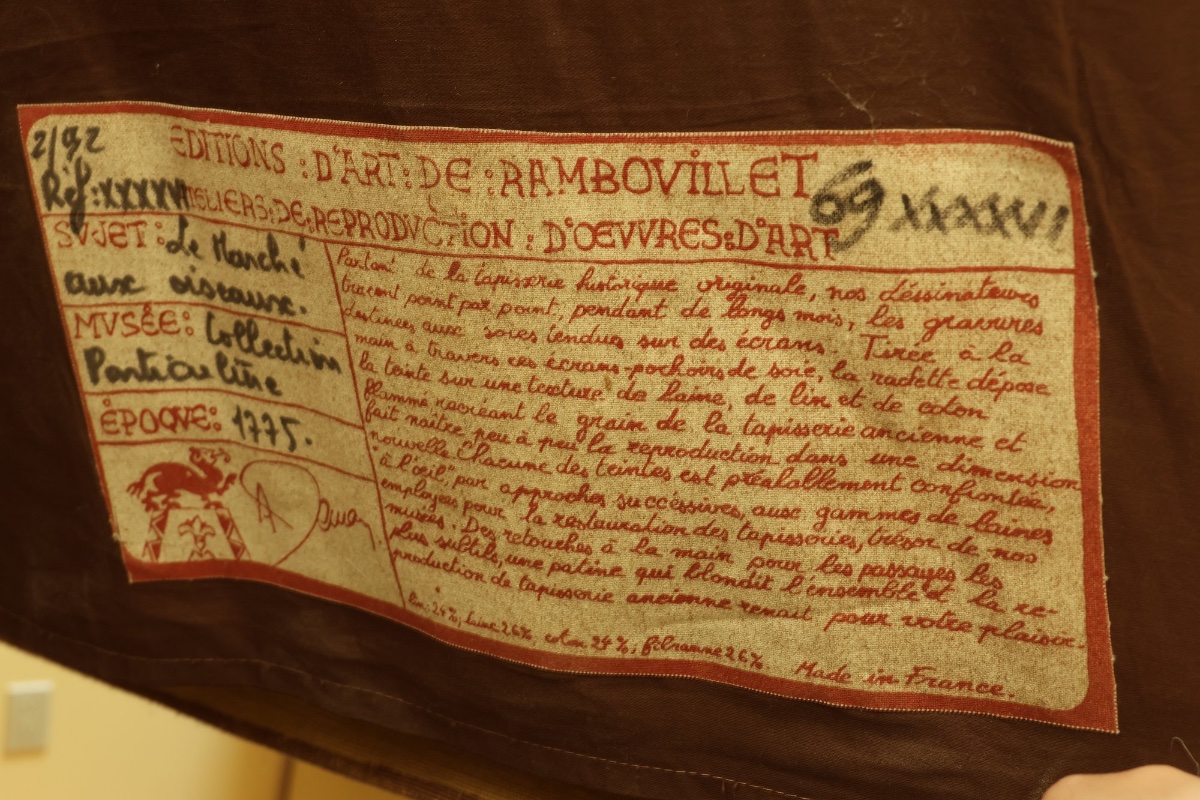 2/92
EDITIONS : D'ART : DE : RAMBOVILLET
69 XXXXVI
Réf: XXXXVI
ATELIERS:DE:REPRODVCTION : D'OEVVRES:D'ART
SVJET : Le Marché
aux oiseaux.
MVSÉE: Collection
Particulière
ÉPOQVE: 1775.
Partant de la tapisserie historique originale, nos déssinateurs
tracent point par point, pendant de longs mois, les gravures
destinées aux soies tendues sur des écrans. Tirée à la
main à travers ces écrans-pochoirs de soie, la raclette dépose
la teinte sur une texture de laine, de lin et de coton
flammé recréant le grain de la tapisserie ancienne et
fait naître peu à peu la reproduction dans une dimension
nouvelle. Chacune des teintes est préalablement confrontée,
"à l'oeil", par approches successives, aux gammes de laines
employées pour la restauration des tapisseries, trésor de nos
musées. Des retouches à la main pour les passages les
plus subtils, une patine qui blondit l'ensemble et la re-
production de tapisserie ancienne renait pour votre plaisir.
lin: 24%, laine 26%, coton 24%, fibranne 26%.
Made in France.